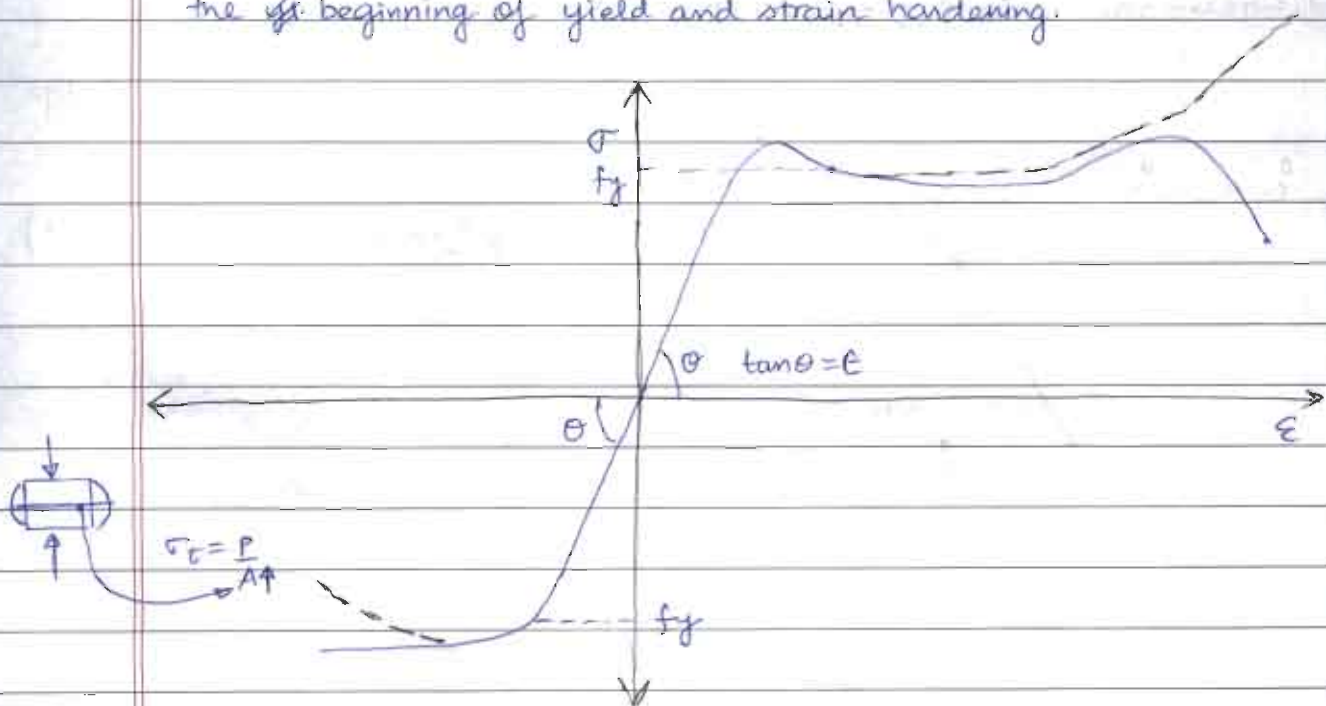 the beginning of yield and strain hardening.
σ
fy
θ tanθ = E
ε
θ
σt = P
A↑
fy